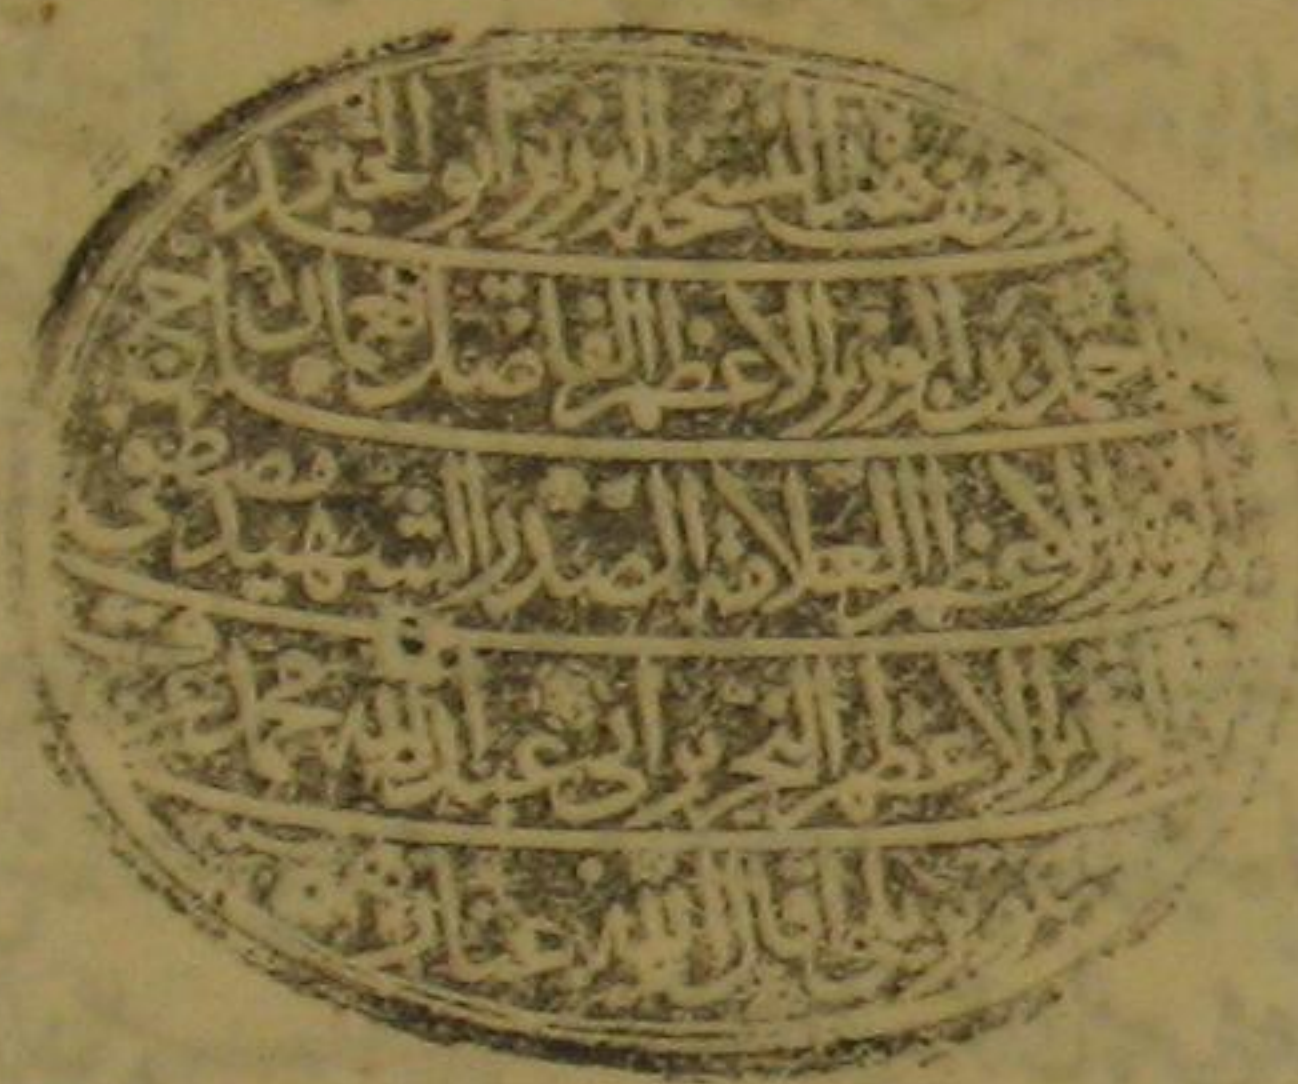 وقف هذه النسخة الوزير ابو الخير
احمد بن الوزير الاعظم الفاضل نعمان بن
الوزير الاعظم العلامة الصدر الشهيد مصطفى
الوزير الاعظم النحرير ابي عبد الله محمد عرف
اقال الله عثارهم